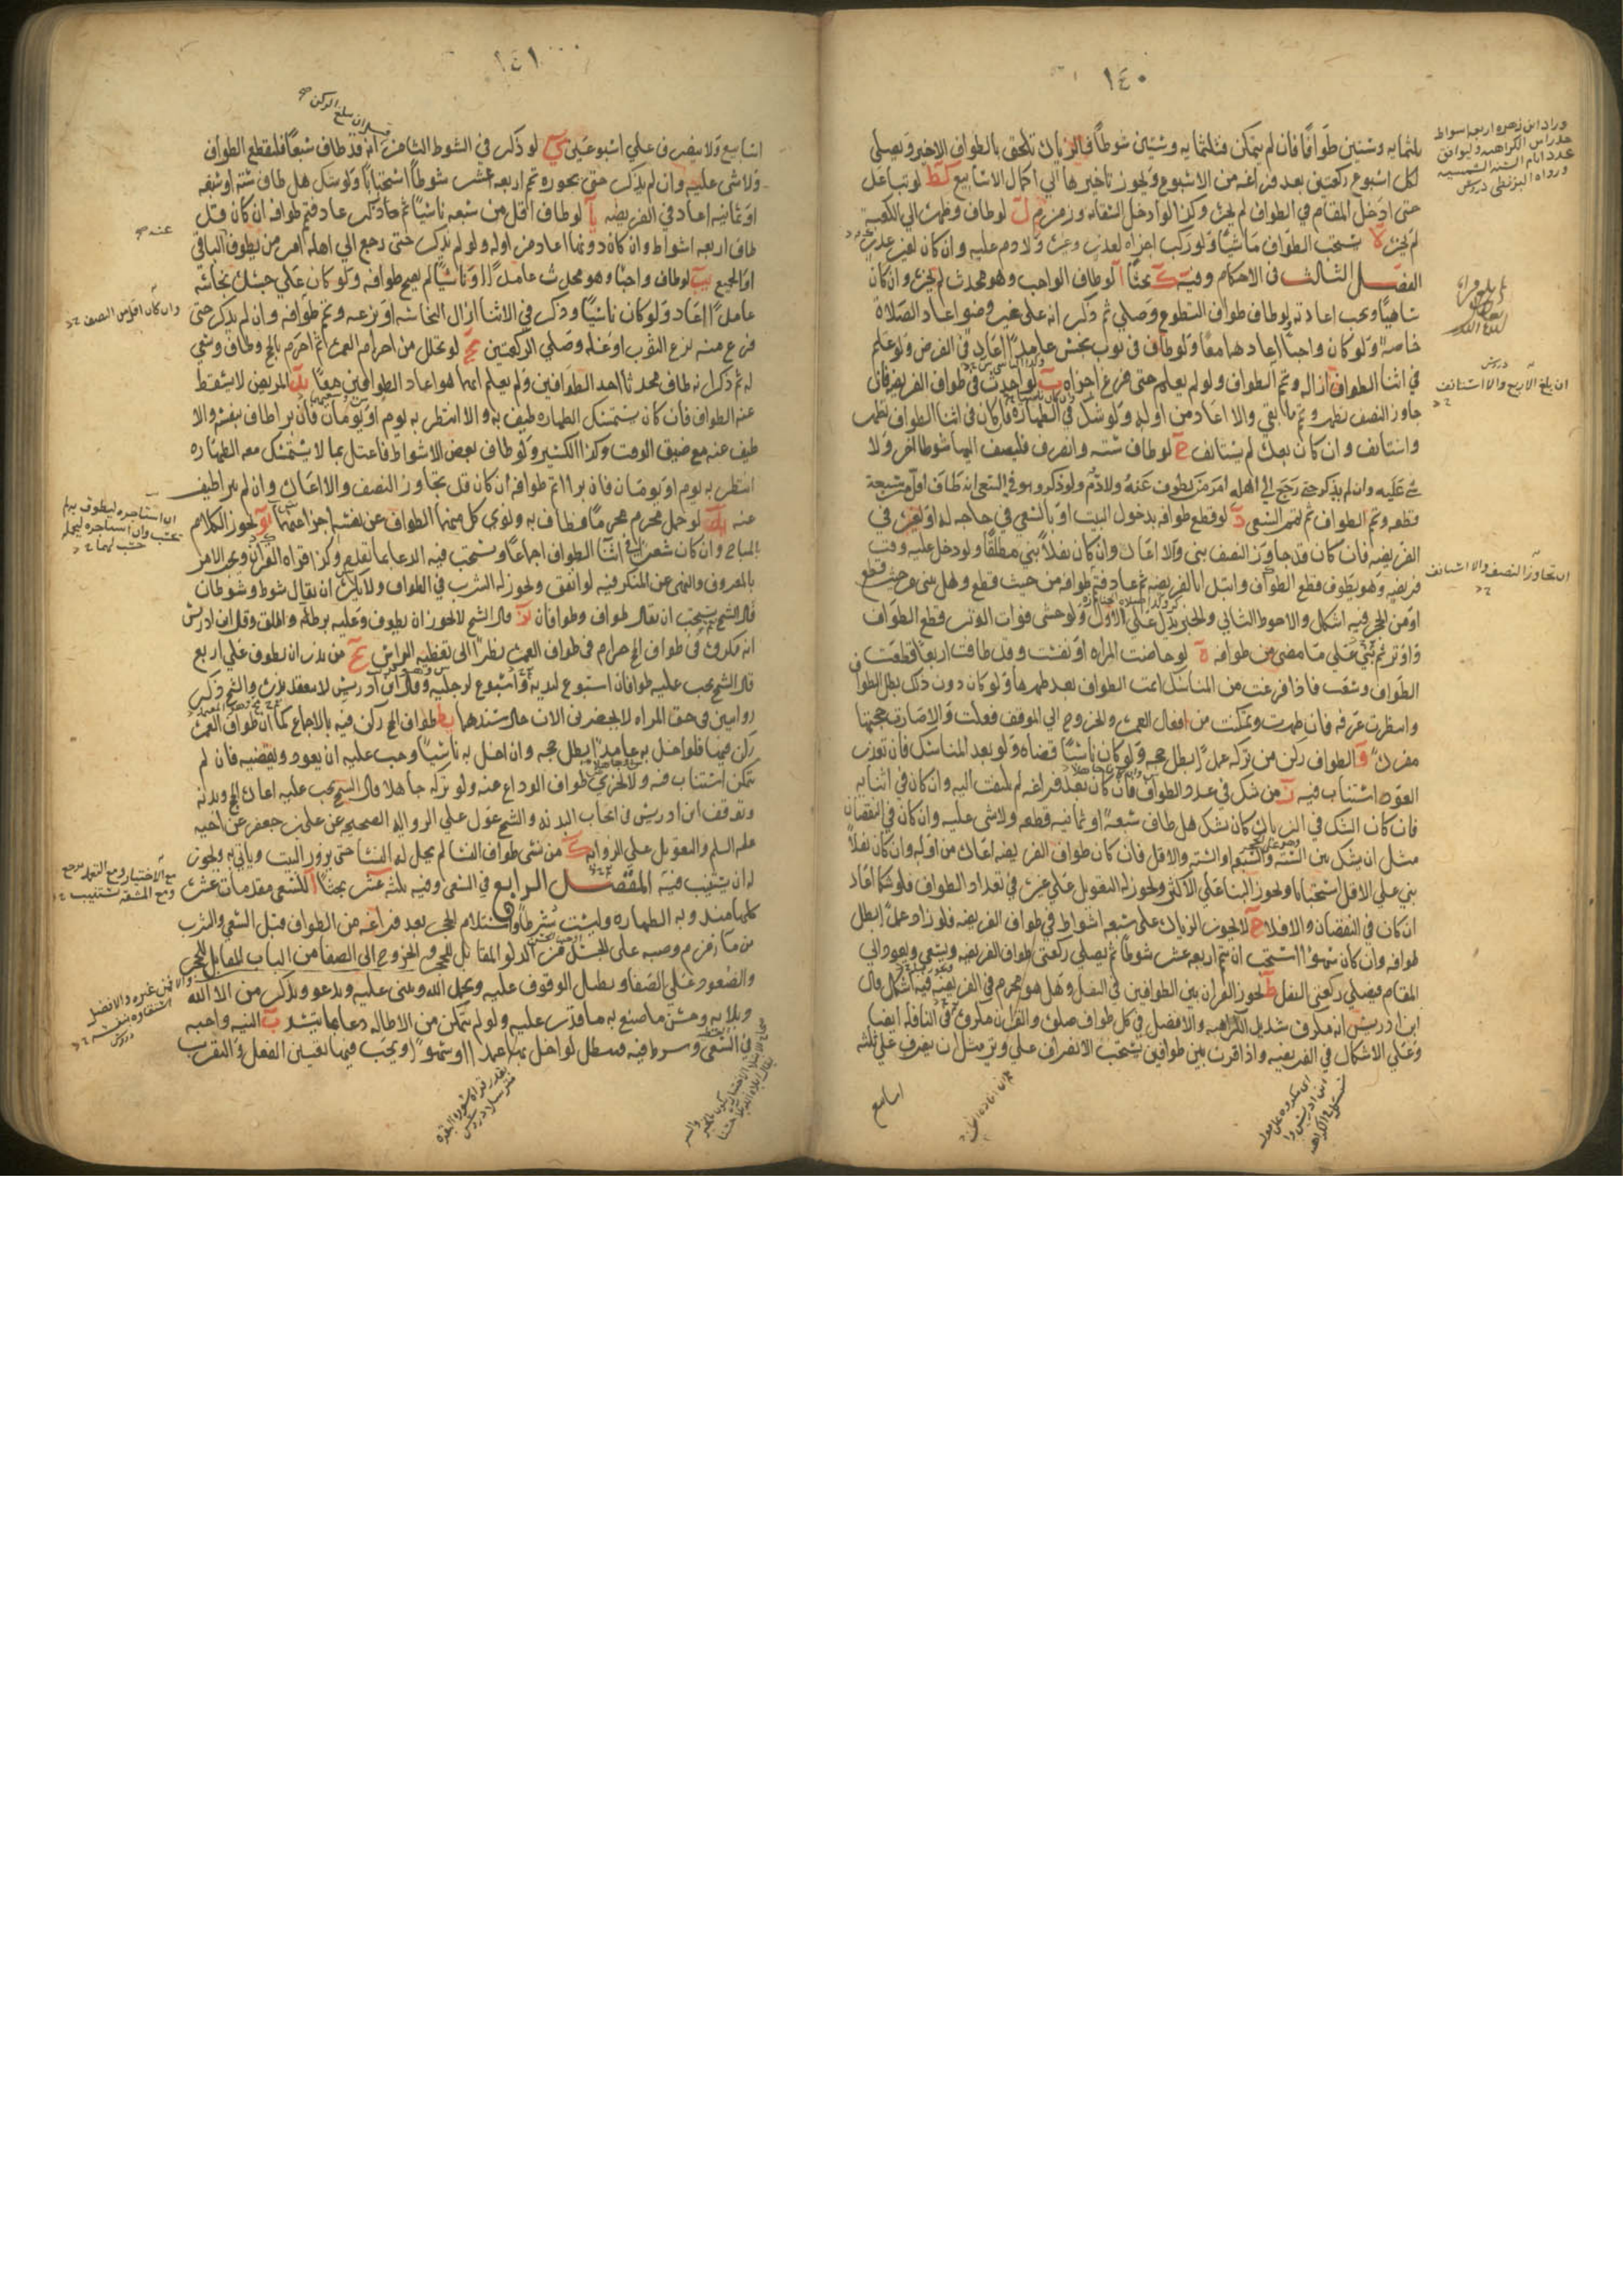 ١٤٠
بلثمايه وستين طوافا فان لم يتمكن فثلثمايه وستين شوطا فالزياده تلحق بالطواف الاخير ويصلي
لكل اسبوع ركعتين بعد فراغه من الاسبوع ويجوز تاخيرها الي اكمال الاسابيع كط لو تباعد
حتى ادخل المقام في الطواف لم يجزه وكذا لو ادخل السقايه وزمزم ل لو طاف وظهره الي الكعبة
لم يجزه لا يستحب الطواف ماشيا ولو ركب اجزاه لعذر وغيره ولا دم عليه وان كان لغير عذر
الفصل الثالث في الاحكام وفيه ك بحثا ا لو طاف الواجب وهو محدث لم يجزه وان كان
ساهيا ويجب اعادته ولو طاف طواف التطوع وصلي ثم ذكر انه على غير وضو اعاد الصلاة
خاصه ولو كان واجبا اعادهما معا ولو طاف في ثوب نجس عامدا اعاد في الفرض ولو علم
في اثنا الطواف ازاله وتم الطواف ولو لم يعلم حتى فرغ اجزاه ب لو احدث في طواف الفريضه فان
جاوز النصف تطهر وتم ما بقي والا اعاد من اوله ولو شك في الطهارة فان كان في اثنا الطواف تطهر
واستانف وان كان بعده لم يستانف ج لو طاف سته وانصرف فليضف اليها شوطا اخر ولا
شي عليه وان لم يذكر حتى رجع الي اهله امر من يطوف عنه ولا دم ولو ذكر وهو في السعي انه طاف اقل من سبعة
قطعه وتم الطواف ثم تمم السعي د لو قطع طوافه بدخول البيت او بالسعي في حاجه له او لغيره في
الفريضه فان كان قد جاوز النصف بنى والا اعاد وان كان نفلا بني مطلقا ولو دخل عليه وقت
فريضه وهو يطوف قطع الطواف وابتدا بالفريضه ثم عاد فتم طوافه من حيث قطع وهل يبنى من حيث قطع
او من الحجر فيه اشكال والاحوط الثاني والخبر يدل على الاول ولو خشى فوات الوتر قطع الطواف
واوتر ثم بنى على ما مضى من طوافه ه لو حاضت المراه او نفست وقد طافت اربعا قطعت
الطواف وسعت فاذا فرغت من المناسك اتمت الطواف بعد طهرها ولو كان دون ذلك بطل الطواف
وانتظرت عرفه فان طهرت وتمكنت من افعال العمره والخروج الي الموقف فعلت والا صارت حجتها
مفرده و الطواف ركن من تركه عمدا بطل حجه ولو كان ناسيا قضاه ولو بعد المناسك فان تعذر
العود استناب فيه ز من شك في عدد الطواف فان كان بعد فراغه لم يلتفت اليه وان كان في اثنايه
فان كان الشك في الزياده كان يشك هل طاف سبعه او ثمانيه قطعه ولا شي عليه وان كان في النقصان
مثل ان يشك بين السته والسبعه او السته والاقل فان كان طواف الفريضه اعاده من اوله وان كان نفلا
بني علي الاقل استحبابا ويجوز البنا علي الاكثر ويجوز له التعويل علي غيره في تعداد الطواف فلو شكا اعاد
ان كان في النقصان والا فلا ح لا يجوز الزياده على سبعه اشواط في طواف الفريضه فلو زاد عمدا بطل
طوافه وان كان سهوا استحب ان يتم اربعه عشر شوطا ثم يصلي ركعتي طواف الفريضه ويسعي ويعود الي
المقام فيصلي ركعتي النفل ط يجوز القران بين الطوافين في النفل وهل هو محرم في الفريضه فيه اشكال قال
ابن ادريس انه مكروه شديد الكراهيه والافضل في كل طواف صلوه والقران مكروه في النافله ايضا
وعلي الاشكال في الفريضه واذا قرن بين طوافين يستحب الانصراف علي وتر مثل ان ينصرف علي ثلثه
اسابيع
وزاد ابن زهره اربعه اشواط
حذرا من الكراهه وليوافق
عدد ايام السنه الشمسيه
ورواه البزنطي دروس
ان بلغ الاربع والا استانف
ان تجاوز النصف والا استانف
١٤١
اسابيع ولا ينصرف علي اسبوعين ي لو ذكر في الشوط الثامن انه قد طاف سبعا فليقطع الطواف
ولا شى عليه وان لم يذكر حتى يجوزه تم اربعه عشر شوطا استحبابا ولو شك هل طاف سته او سبعه
او ثمانيه اعاد في الفريضه يا لو طاف اقل من سبعه ناسيا ثم ذكر عاد فتم طوافه ان كان قد
طاف اربعه اشواط وان كان دونها اعاد من اوله ولو لم يذكر حتى رجع الي اهله امر من يطوف الباقي
او الجميع يب لو طاف واجبا وهو محدث عامدا او ناسيا لم يصح طوافه ولو كان علي جسده نجاسة
عامدا اعاد ولو كان ناسيا وذكر في الاثنا ازال النجاسه او نزعه وتم طوافه وان لم يذكر حتى
فرغ منه نزع الثوب او غسله وصلي الركعتين يج لو تحلل من احرام العمره ثم احرم بالحج وطاف وسعي
له ثم ذكر انه طاف محدثا احد الطوافين ولم يعلم ايهما هو اعاد الطوافين معا يد المريض لا يسقط
عنه الطواف فان كان يستمسك الطهاره طيف به والا انتظر به يوم او يومان فان برا طاف بنفسه والا
طيف عنه مع ضيق الوقت وكذا الكسير ولو طاف بعض الاشواط فاعتل بما لا يستمسك معه الطهاره
انتظر به يوم او يومان فان برا اتم طوافه ان كان قد تجاوز النصف والا اعاده وان لم يبرا طيف
عنه يه لو حمل محرم محرما فطاف به ونوي كل منهما الطواف عن نفسه اجزا عنهما يو يجوز الكلام
بالمباح وان كان شعرا في اثنا الطواف اجماعا ويستحب فيه الدعا بما تقدم وكذا قراه القران ويجوز الامر
بالمعروف والنهي عن المنكر فيه لو اتفق ويجوز له الشرب في الطواف ولا يكره ان يقال شوط وشوطان
قال الشيخ يستحب ان يقال طواف وطوافان يز قال الشيخ لا يجوز ان يطوف وعليه برطله واطلق وقال ابن ادريس
انه مكروه في طواف الحج حرام في طواف العمره نظرا الى تغطيه الراس يح من نذر ان يطوف علي اربع
قال الشيخ يجب عليه طوافان اسبوع ليديه واسبوع لرجليه وقال ابن ادريس لا ينعقد نذره والشيخ ذكر
روايتين في حق المراه لا يحضرني الان حال سندهما يط طواف الحج ركن فيه بالاجماع كما ان طواف العمره
ركن فيها فلو اخل به عامدا بطل حجه وان اخل به ناسيا وجب عليه ان يعود ويقضيه فان لم
يتمكن استناب فيه ولا يجزي طواف الوداع عنه ولو تركه جاهلا قال الشيخ يجب عليه اعاده الحج وبدنه
وتوقف ابن ادريس في ايجاب البدنه والشيخ عول علي الروايه الصحيحه عن علي بن جعفر عن اخيه
عليه السلم والتعويل على الروايه ك من نسي طواف النسا لم يحل له النسا حتى يزور البيت وياتي به ويجوز
له ان يستنيب فيه الفصل الرابع في السعي وفيه ثلثه عشر بحثا ا للسعي مقدمات عشره
كلها مندوبه الطهاره وليست شرطا واستلام الحجر بعد فراغه من الطواف قبل السعي والشرب
من ما زمزم وصبه على الجسد من الدلو المقابل للحجر والخروج الى الصفا من الباب المقابل للحجر
والصعود علي الصفا ويطيل الوقوف عليه ويحمد الله ويثني عليه ويدعو ويذكر من الا الله
وبلايه وحسن ما صنع به ما قدر عليه ولو لم يتمكن من الاطاله دعا بما تيسر ب النيه واجبه
في السعي وشرط فيه فيبطل لو اخل بها عمدا او سهوا ويجب فيها تعيين الفعل والتقرب
وان كان اقل من النصف
ان استاجره ليطوف به لم
يحتسب وان استاجره ليحمله
حسب لهما
مع الاختيار ومع التعذر يرجع
ومع المشقه يستنيب
بقدر قراه سوره البقره
مترسلا دروس